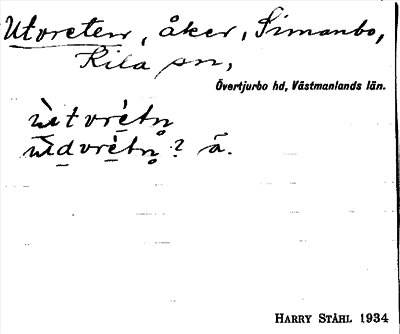 Utvreten, åker, Simanbo,
Kila sn,
Övertjurbo hd, Västmanlands län.
ùtvrètn̥
ùdvrètn̥ ? ā.
HARRY STÅHL 1934